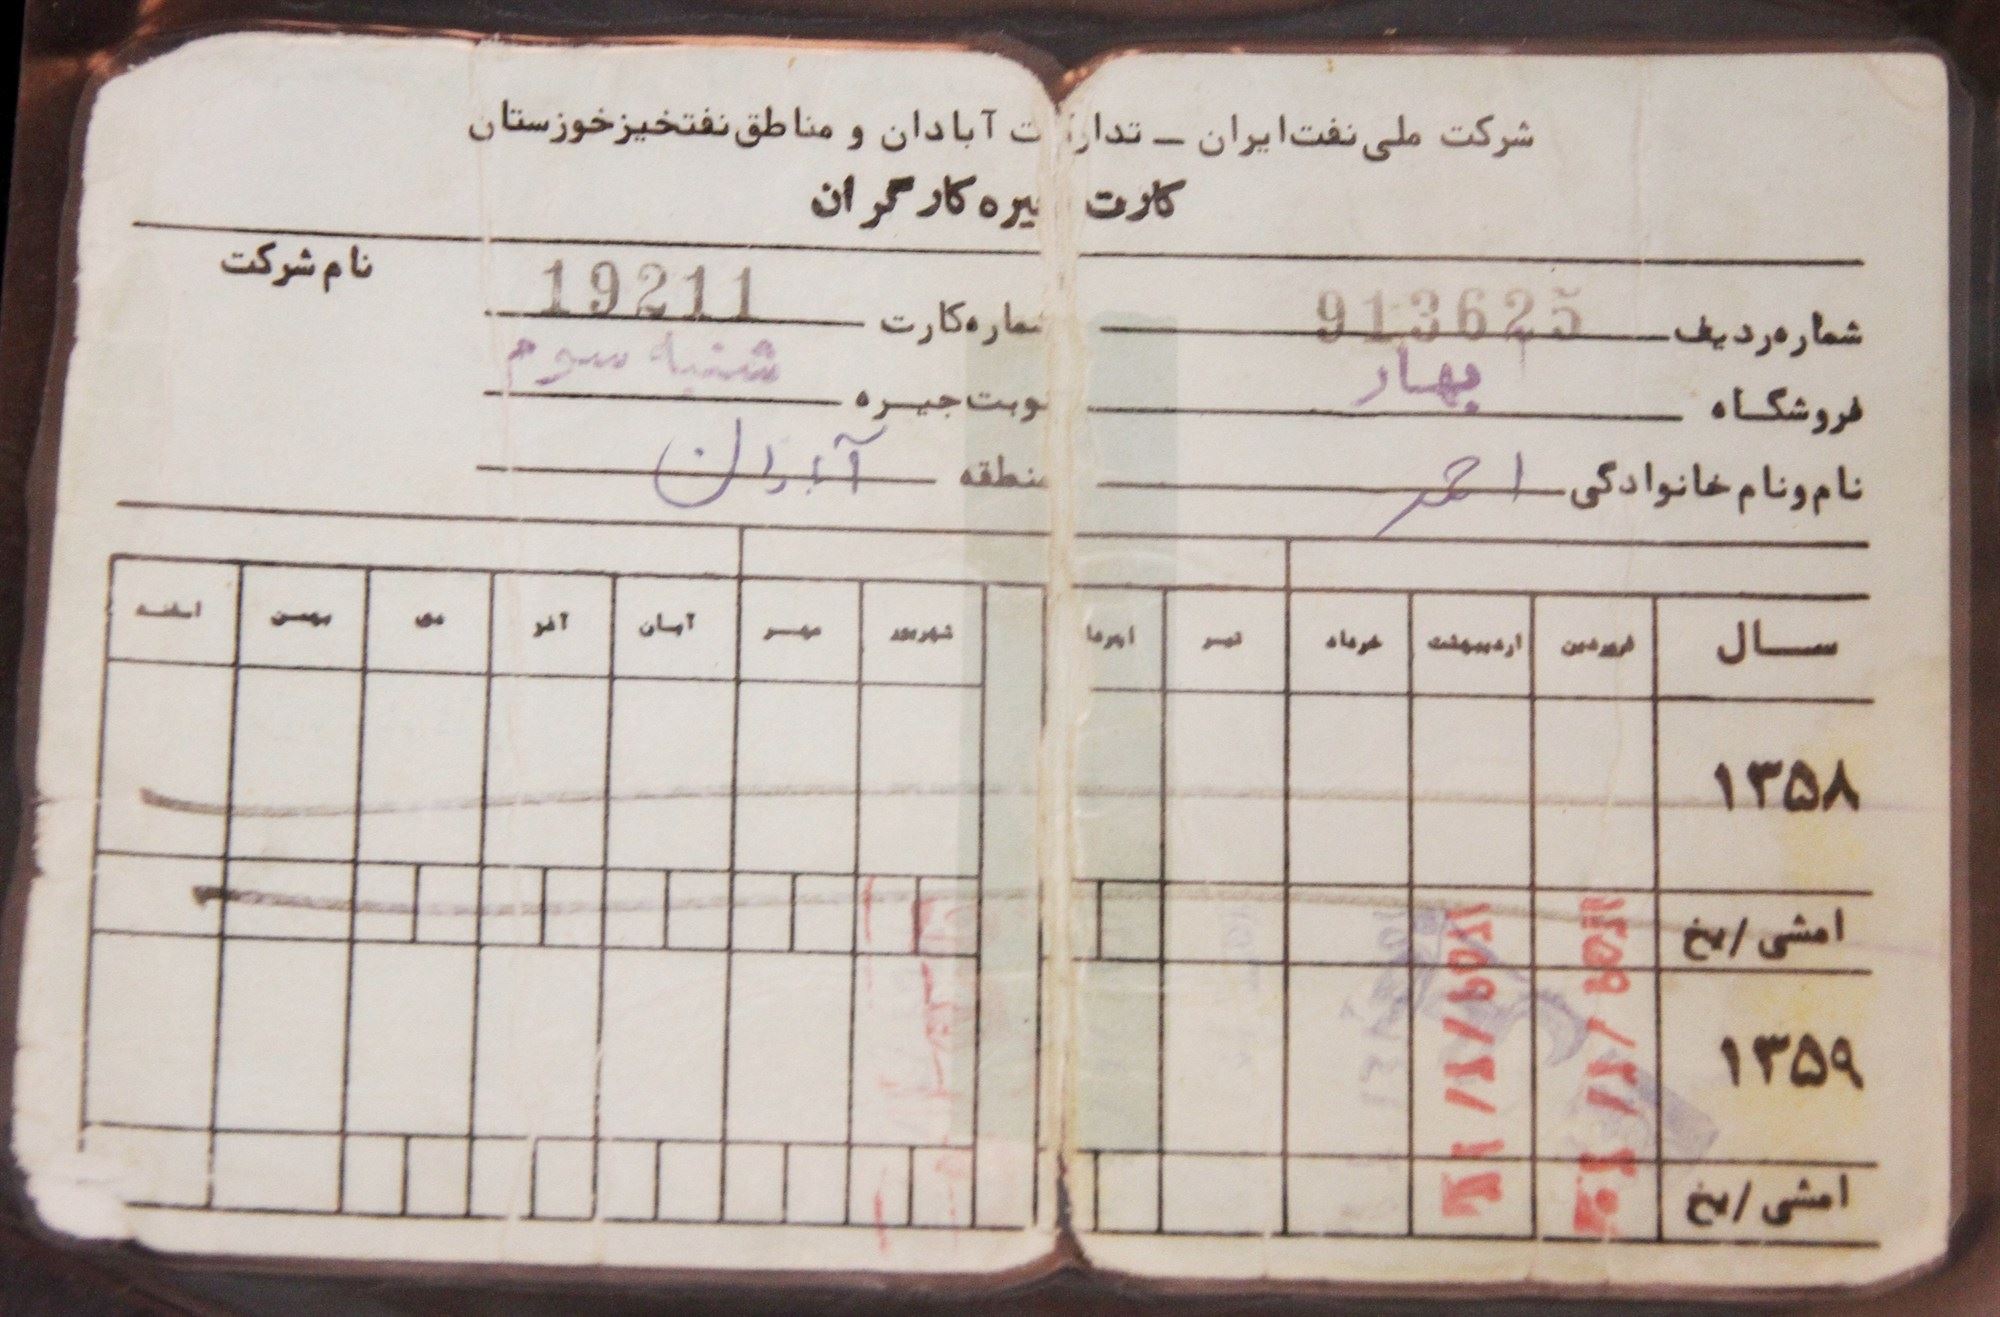 شرکت ملی نفت ایران ــ تدارکات آبادان و مناطق نفتخیز خوزستان
کارت جیره کارگران
نام شرکت
شماره ردیف 913625 شماره کارت 19211
فروشگاه بهار نوبت جیره شنبه سوم
نام و نام خانوادگی احمد منطقه آبادان
سال فروردین اردیبهشت خرداد تیر امرداد شهریور مهر آبان آذر دی بهمن اسفند
۱۳۵۸
امشی / یخ
۱۳۵۹
امشی / یخ